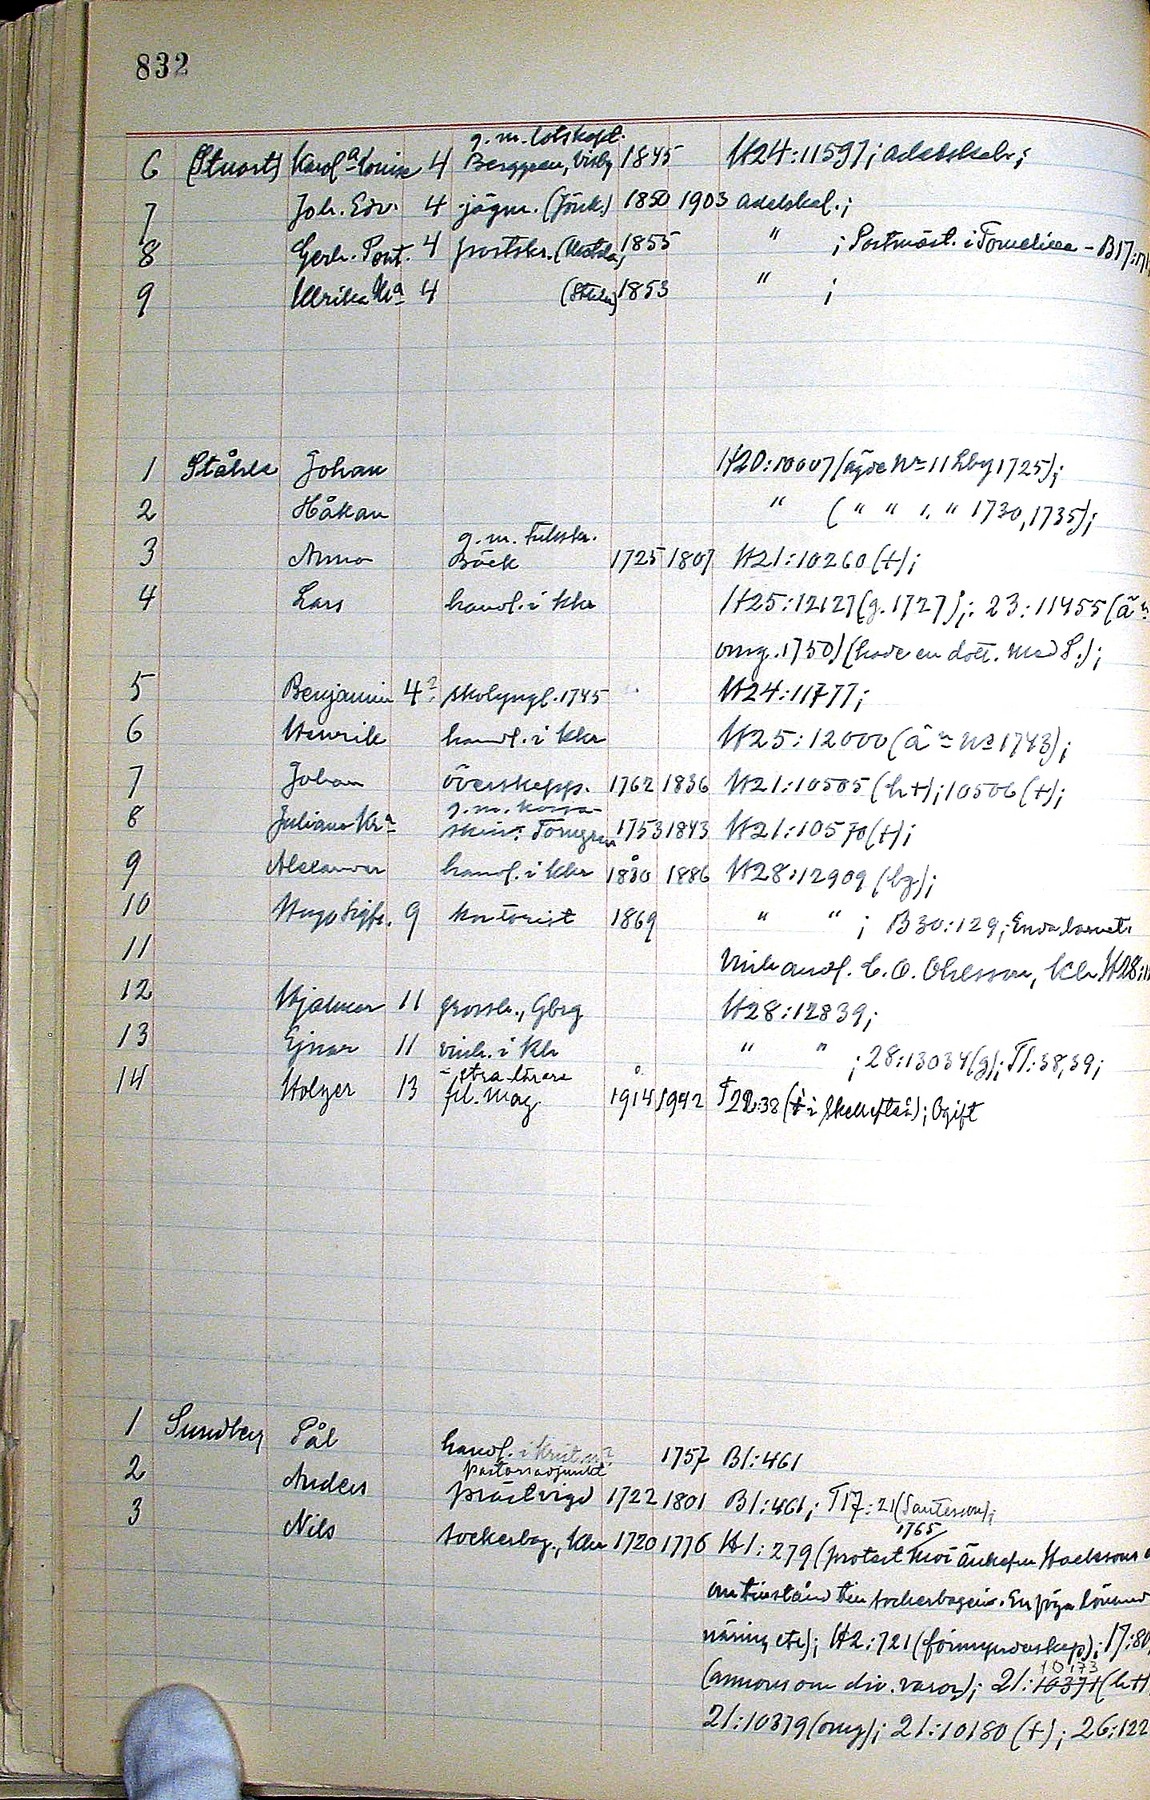 832
g. m. lotskapt.
6 (Stuart) Karolª Louise 4 Berggren, Visby 1845 H24:11597; adelskal.;
7 Joh. Edv. 4 jägm. (Jönk.) 1850 1903 adelskal.;
8 Gerh. Pont. 4 postskr. 1855 " ; Postmäst. i Torne - B17:
9 Ulrika Mª 4 1853 " ;
1 Ståhle Johan H20:10007 (ägde Nº 11 Lby 1725);
2 Håkan " ( " " " " 1730, 1735);
g. m.
3 Anna Bäck 1725 1807 H21:10260 (+);
4 Lars handl. i Khr H25:12127 (g. 1727); 23:11455 (
omg. 1750) (hade en dott. med S.);
5 Benjamin 4? skolyngl. 1745 H24:11777;
6 Henrik handl. i Khr H25:12000 ( 1743);
7 Johan överskepp. 1762 1836 H21:10505 (h+); 10506 (+);
g. m.
8 Juliana Krª Törngren 1753 1843 H21:10570 (+);
9 Alexander handl. i Khr 1830 1886 H28:12909 (bg);
10 Hugo Sigfr. 9 kontorist 1869 " " ; B30:129; Enda barnet
11 Vinhandl. C. O. Ohlsson, Khr H28:
12 Hjalmar 11 grossh., Gbrg H28:12839;
13 Ejnar 11 vinh. i Khr " " ; 28:13034 (g); T1:38, 39;
extra lärare
14 Holger 13 fil. mag. 1914 1942 T22:38 (+ i Skellefteå); Ogift
1 Sundberg Pål handl. 1757 B1:461
pastorsadjunkt
2 Anders prästvigd 1722 1801 B1:461; T17:21 (Santesson);
1765
3 Nils sockerbag., Khr 1720 1776 H1:279 (protest mot änkefru
om tillstånd till sockerbageri. En piga
näring etc); H2:721 (förmyndarskap); 17:80
10173
(annons om div. varor); 21:10371 (h+)
21:10379 (omg); 21:10180 (+); 26:122